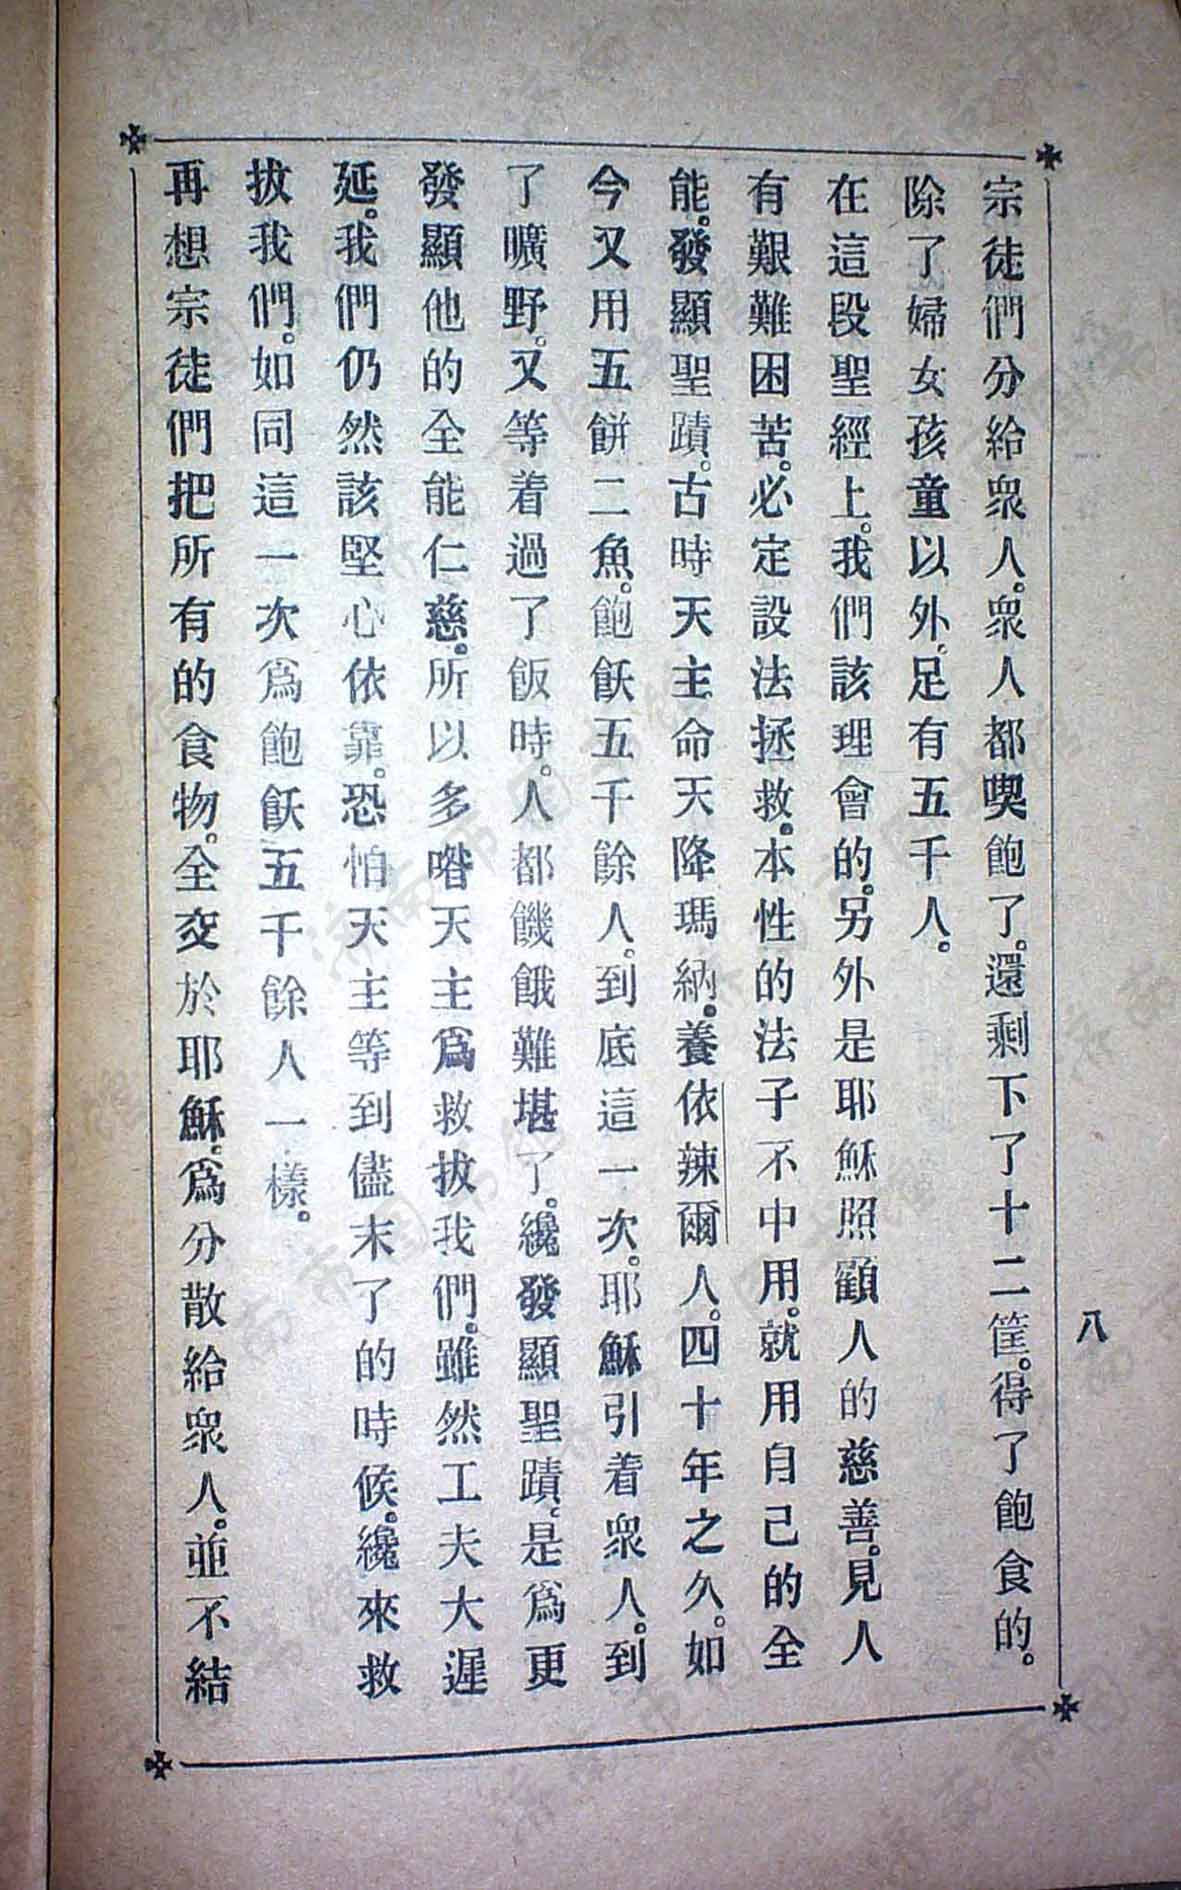 宗徒們分給衆人。衆人都喫飽了。還剩下了十二筐。得了飽食的。
除了婦女孩童以外、足有五千人。
在這段聖經上。我們該理會的。另外是耶穌照顧人的慈善。見人
有艱難困苦。必定設法拯救。本性的法子不中用。就用自己的全
能。發顯聖蹟。古時天主命天降瑪納。養依辣爾人。四十年之久。如
今又用五餅二魚。飽飫五千餘人。到底這一次。耶穌引着衆人。到
了曠野。又等着過了飯時。人都饑餓難堪了。纔發顯聖蹟、是爲更
發顯他的全能仁慈。所以多喒天主爲救拔我們。雖然工夫大遲
延。我們仍然該堅心依靠。恐怕天主等到儘末了的時候。纔來救
拔我們。如同這一次爲飽飫五千餘人一樣。
再想宗徒們把所有的食物。全交於耶穌。爲分散給衆人。並不結
八